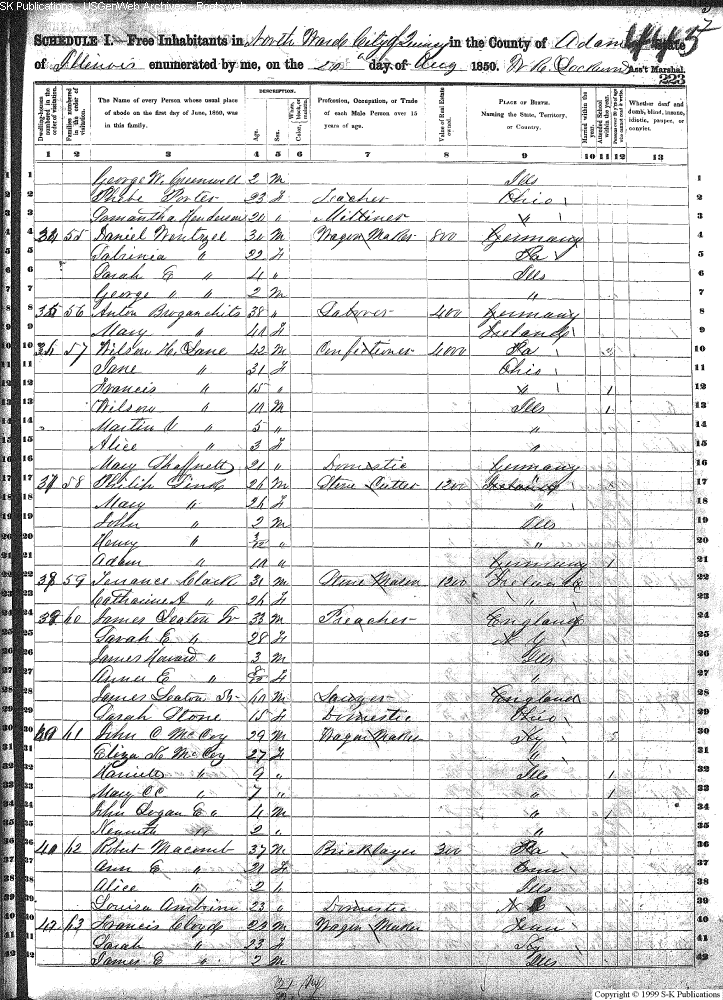 SK Publications - USGenWeb Archives -
SCHEDULE I.—Free Inhabitants in North Ward City of Quincy in the County of Adams State
of Illinois enumerated by me, on the 20 day of Aug 1850. Ass't Marshal.
223
Dwelling-houses numbered in the order of visitation.
Families numbered in the order of visitation.
The Name of every Person whose usual place of abode on the first day of June, 1850, was in this family.
DESCRIPTION.
Age.
Sex.
White, black, or mulatto.
Color,
Profession, Occupation, or Trade of each Male Person over 15 years of age.
Value of Real Estate owned.
PLACE OF BIRTH. Naming the State, Territory, or Country.
Married within the year.
Attended School within the year.
Persons over 20 y'rs of age who cannot read & write.
Whether deaf and dumb, blind, insane, idiotic, pauper, or convict.
1 2 3 4 5 6 7 8 9 10 11 12 13
1 George W. Greenwell 2 M Ills 1
2 Phebe Porter 23 f Teacher Ohio 2
3 Samantha Henderson 20 " Milliner " 3
4 55 Daniel Wentzel 30 M Wagon Maker 800 Germany 4
5 Sabrina " 22 f Pa 5
6 Sarah E " 4 " Ills 6
7 George " " 2 M " 7
8 35 56 Anton 38 " Laborer 400 Germany 8
9 Mary " 40 f Ireland 9
10 36 57 Wilson H. Lane 42 M Confectioner 4000 Pa 10
11 Jane " 31 f Ohio 11
12 Francis " 15 " " 1 12
13 Wilson " 10 M Ills 1 13
14 Martin V " 5 " " 14
15 Alice " 3 f " 15
16 Mary 21 " Domestic Germany 16
17 37 58 Philip 26 M Stone Cutter 1200 17
18 Mary " 26 f " 18
19 John " 2 M Ills 19
20 Henry " 3/12 " " 20
21 Adam " 10 " Germany 1 21
22 38 59 Terrance Clark 31 M Stone Mason 1200 Ireland 22
23 Catharine A " 26 f " 23
24 39 60 James Seaton Jr 33 M Preacher England 24
25 Sarah E " 28 f N Y 25
26 James Howard " 3 M Ills 26
27 Anna E " 8/12 f " 27
28 James Seaton Sr 60 M Lawyer England 28
29 Sarah Stone 15 f Domestic Ohio 29
30 61 John C McCoy 29 M Wagon Maker Ky 30
31 Eliza N McCoy 27 f " 31
32 " 9 " Ills 1 32
33 Mary " 7 " " 1 33
34 John Logan E " 4 M " 34
35 Kenneth " 2 " " 35
36 62 Robert Macomb 37 M Bricklayer 300 Pa 36
37 Ann E " 21 f 37
38 Alice " 2 Ills 38
39 Louisa 23 " Domestic N 39
40 63 Francis Cloyd 22 M Wagon Maker Tenn 40
41 Sarah " 23 f Ky 41
42 James E " 2 M Ills 42
Copyright © 1999 S-K Publications